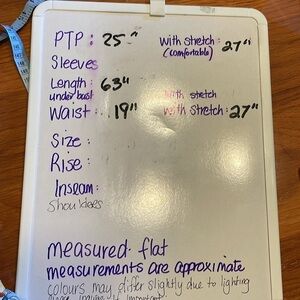 PTP : 25" With stretch : 27"
(comfortable)
Sleeves
Length : 63"
under bust With stretch
Waist : 19" With stretch : 27"
Size :
Rise :
Inseam :
Shoulders
measured flat
measurements are approximate
colours may differ slightly due to lighting